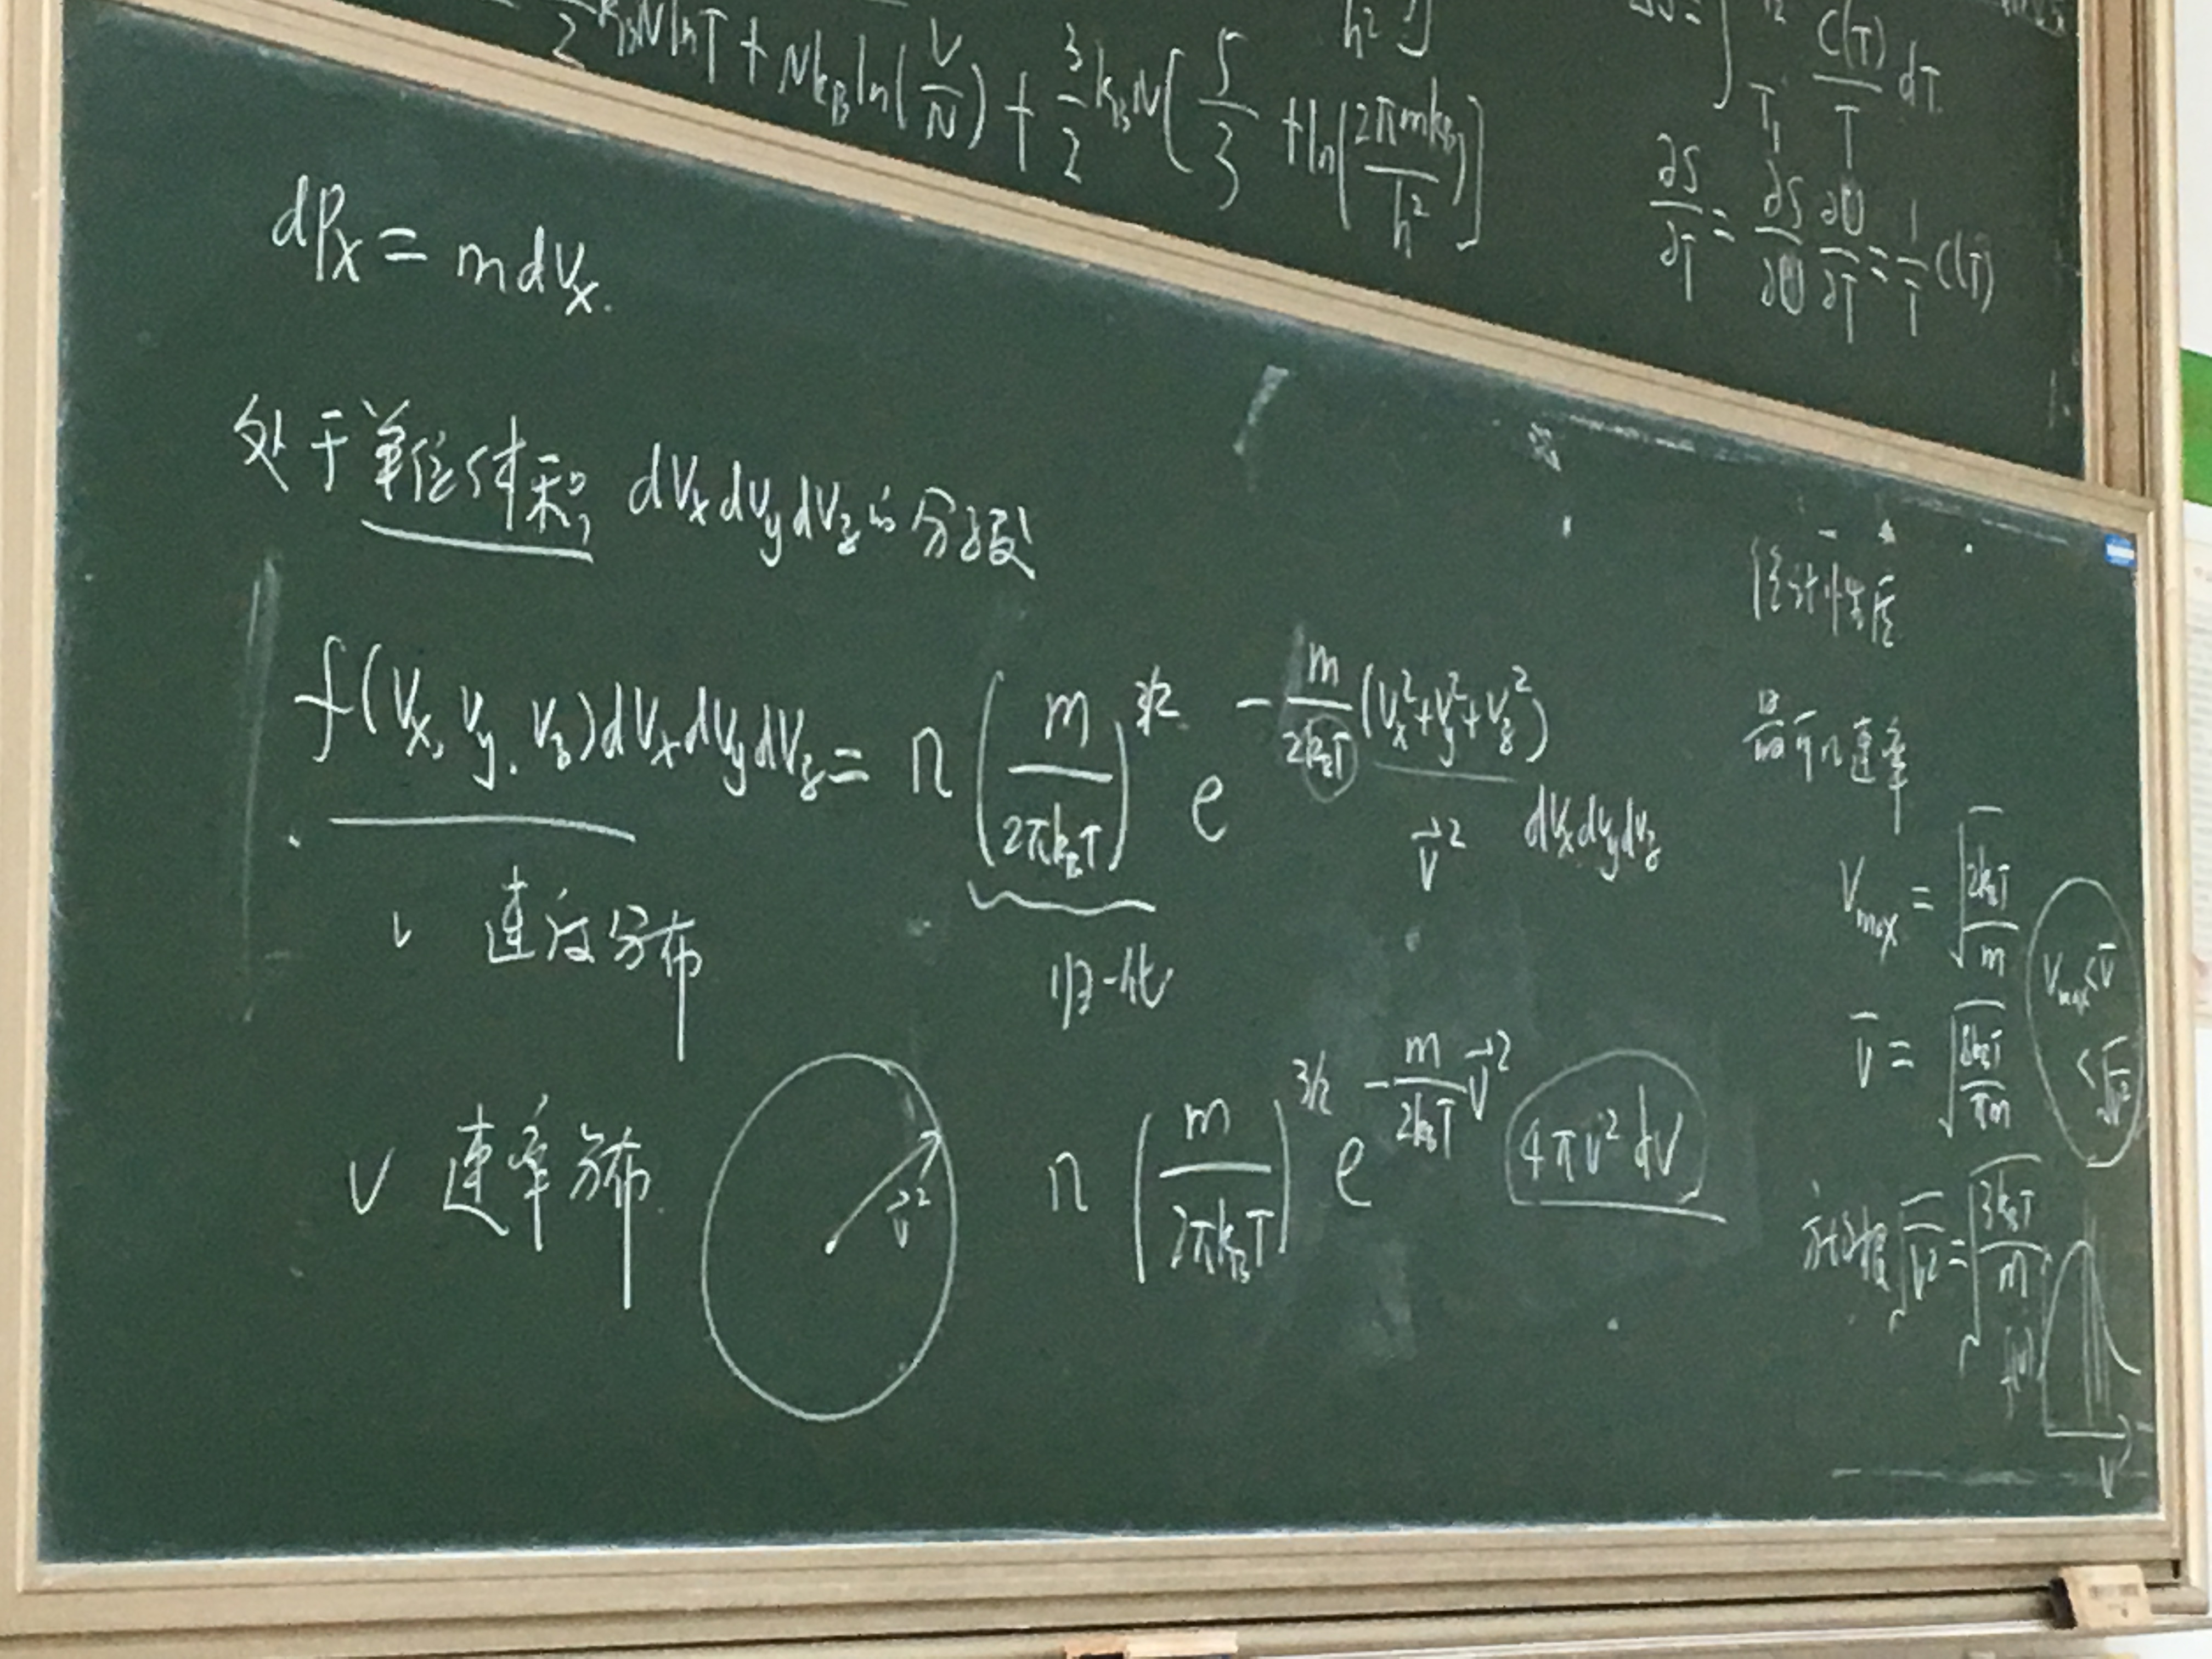 k_B N ln T + N k_B ln(V/N) + 3/2 k_B N [5/3 + ln(2πmk_B/h²)]
C(T)/T dT
∂S/∂T = ∂S/∂U ∂U/∂T = 1/T C(T)
dP_x = m dV_x.
处于单位体积, dV_x dV_y dV_z 的分子数
f(V_x, V_y, V_z) dV_x dV_y dV_z = n (m/2πk_BT)^{3/2} e^{-m/2k_BT (V_x²+V_y²+V_z²)} dV_x dV_y dV_z
v⃗²
速度分布
归一化
v 速率分布
v⃗²
n (m/2πk_BT)^{3/2} e^{-m/2k_BT v⃗²} 4πv²dv
统计性质
最可几速率
V_max = √(2k_BT/m)
v̄ = √(8k_BT/πm)
V_max < v̄
< √v̄²
方均根 √v̄² = √(3k_BT/m)
f(v)
v